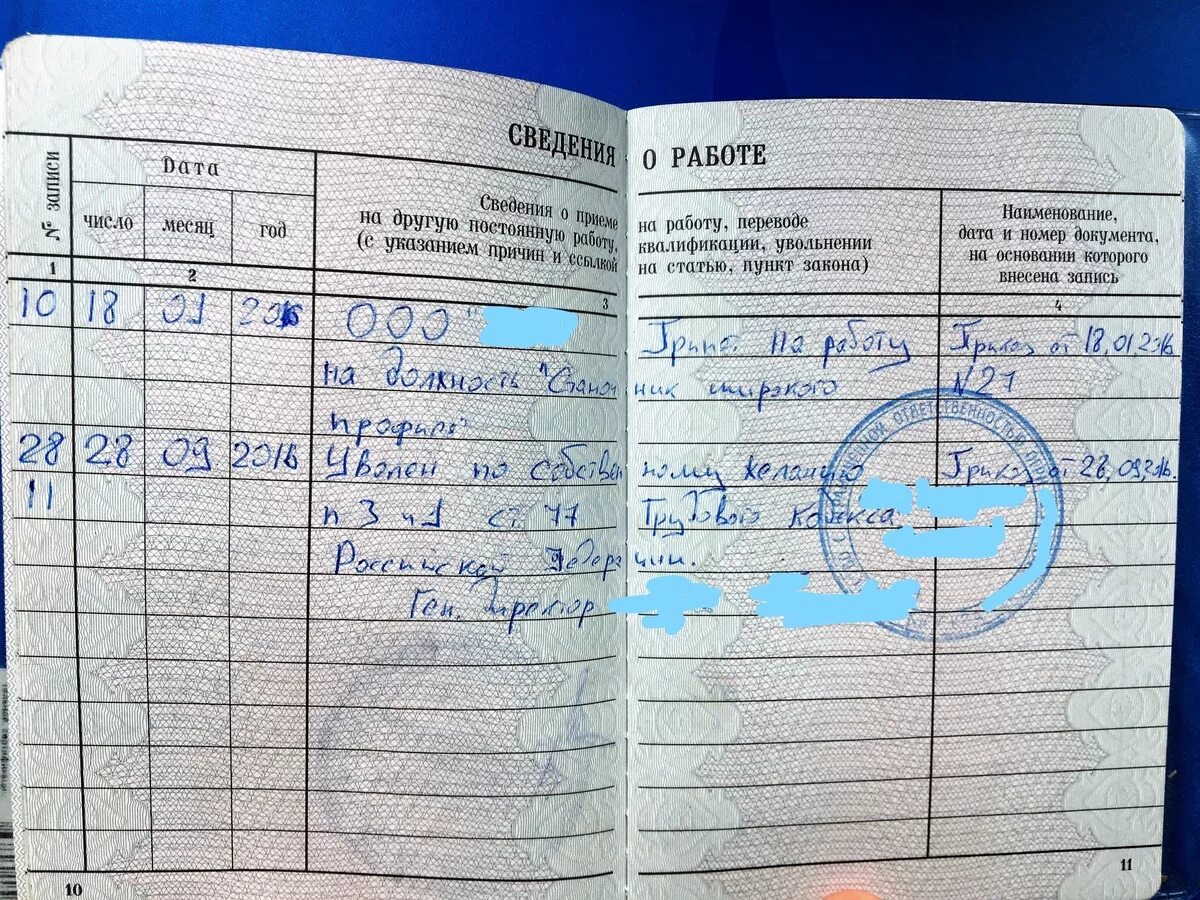 СВЕДЕНИЯ О РАБОТЕ
№ записи
Дата
число месяц год
Сведения о приеме на работу, переводе
на другую постоянную работу, квалификации, увольнении
(с указанием причин и ссылкой на статью, пункт закона)
Наименование,
дата и номер документа,
на основании которого
внесена запись
1 2 3 4
10 18 01 2016 ООО " Принят на работу Приказ от 18.01.2016
на должность "Станочник широкого N27
профиля"
28 28 09 2016 Уволен по собственному желанию Приказ от 28.09.2016.
11 п 3 ч 1 ст 77 Трудового Кодекса
Российской Федерации.
Ген. директор
ОТВЕТСТВЕННОСТЬЮ
10
11